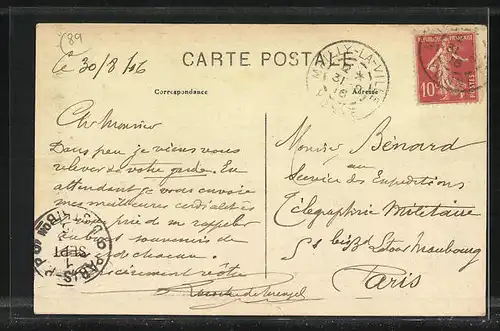 (89
Ce 30/8 16
CARTE POSTALE
Correspondance
Adresse
MAILLY-LA-VILLE
31 8
16
YONNE
RÉPUBLIQUE FRANÇAISE
10
POSTES
Cher Monsieur
Dans peu je viens vous
relever de votre garde. En
attendant je vous envoie
mes meilleures cordialités
vous prie de me rappeler
au bon souvenir de
chacun.
Sincèrement vôtre
Monsieur Bénard
au
Service des Expéditions
Télégraphie Militaire
51 bis Bd Latour Maubourg
Paris
PARIS
SEPT